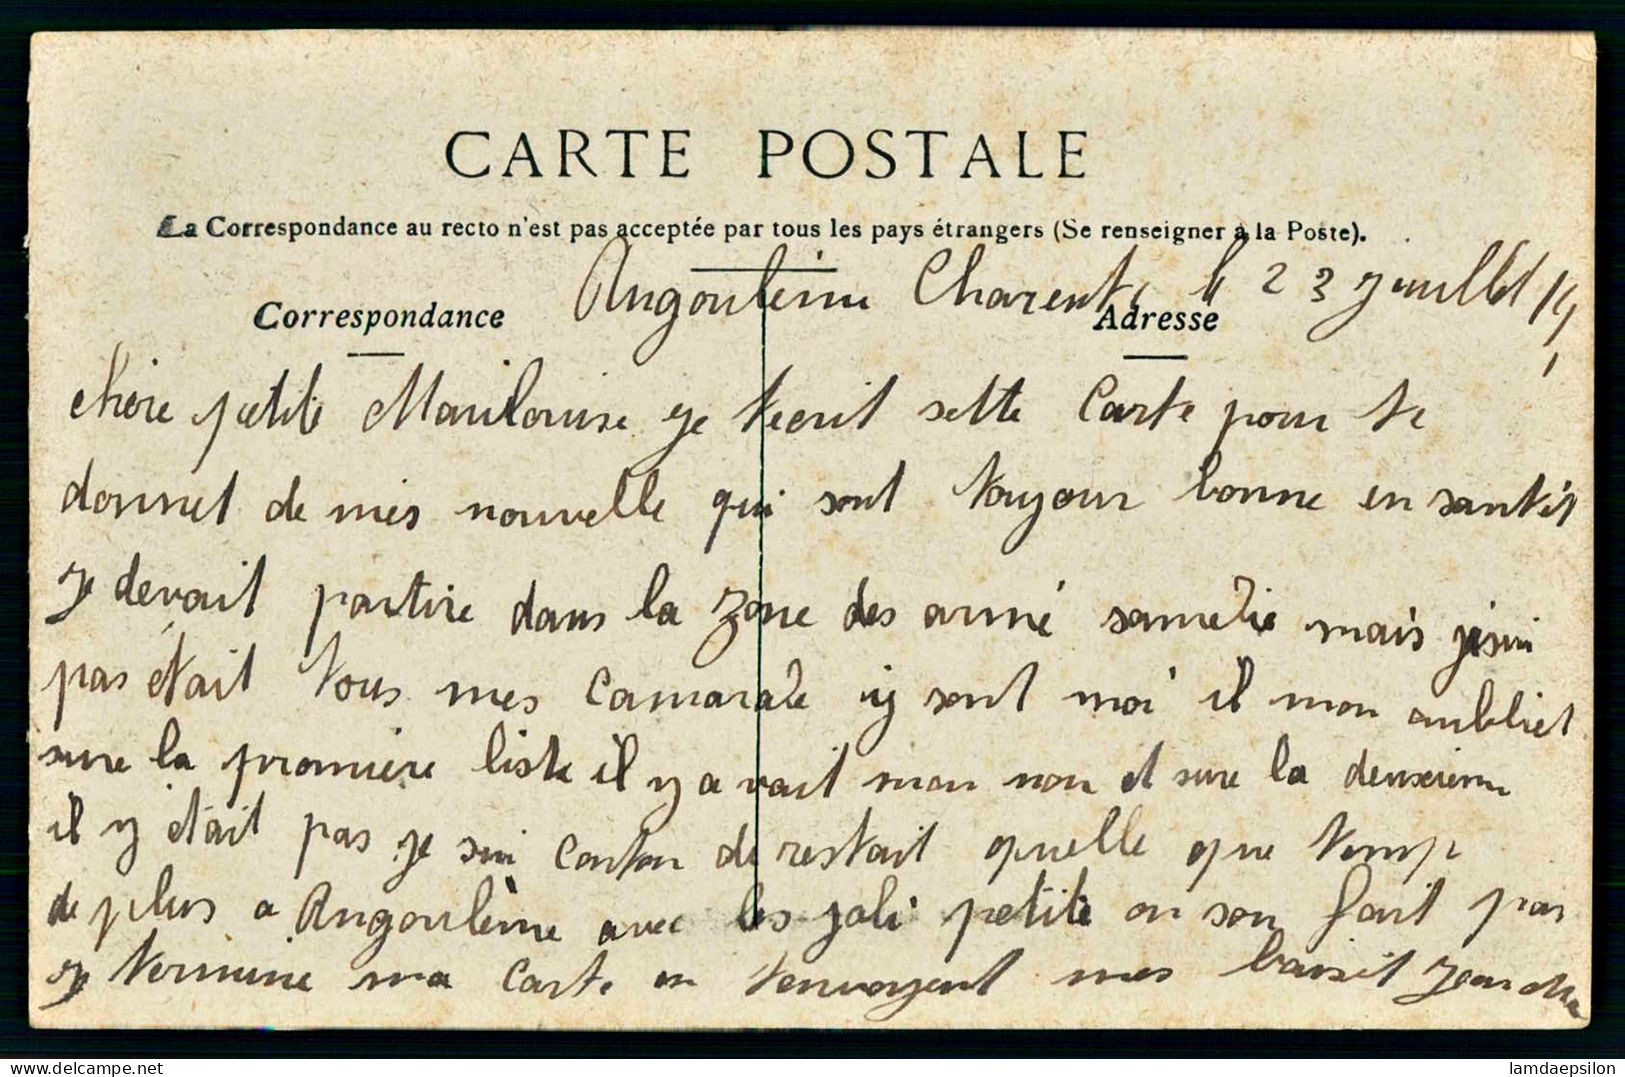 CARTE POSTALE
La Correspondance au recto n'est pas acceptée par tous les pays étrangers (Se renseigner à la Poste).
Angoulême Charente le 23 Juillet
Correspondance
Adresse
chère petite Marilouise je tecrit sette Carte pour te
donnet de mes nouvelle qui sont toujour bonne en santét
Je devait partire dans la zone des armé samedie mais
pas était tous mes camarade iy sont moi il mon oubliet
sure la promière liste il y a vait mon non et sure la deuxième
il y était pas je sui conton de restait quelle que temp
de plus a Angoulême avec les joli petite on son fait pas
Je termine ma carte en tenvoyent mes baisét Jean
lamdaepsilon